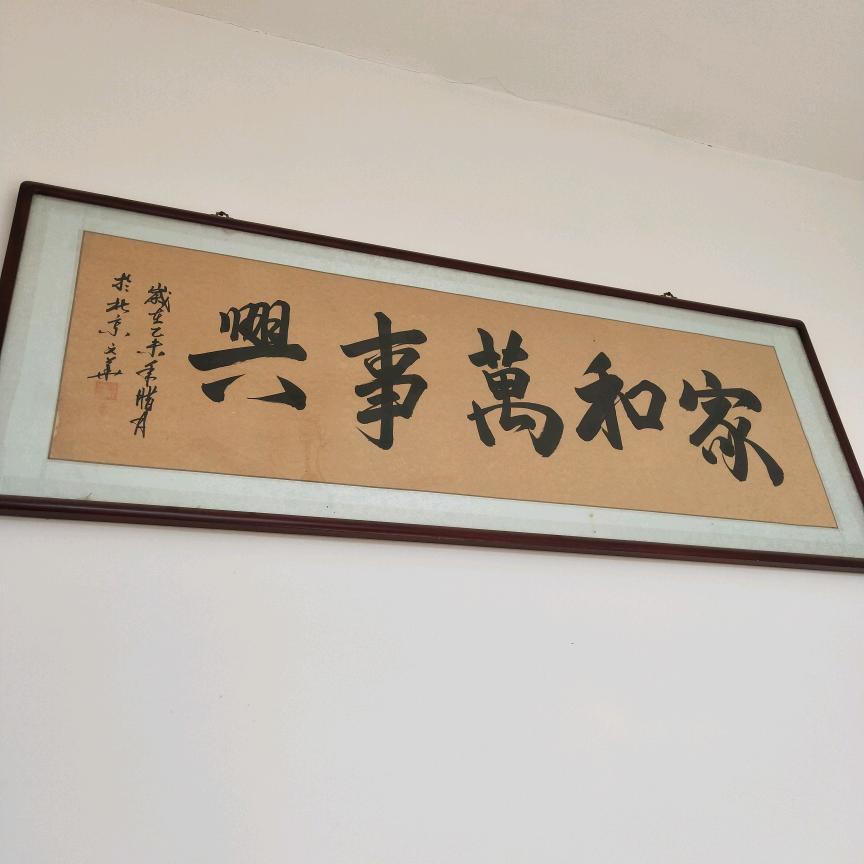 家和萬事興
歲在乙未年腊月
於北京文華